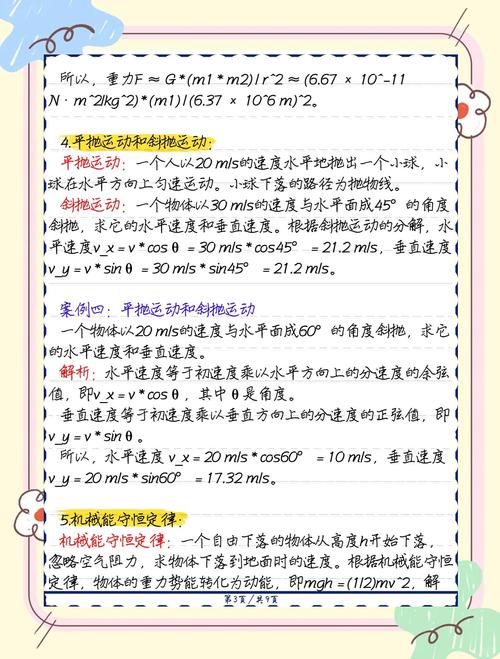 所以，重力F ≈ G*(m1*m2)/r^2 ≈ (6.67 × 10^-11
N·m^2/kg^2)*(m1)/(6.37 × 10^6 m)^2。
4.平抛运动和斜抛运动：
平抛运动：一个人以20 m/s的速度水平地抛出一个小球，小
球在水平方向上匀速运动。小球下落的路径为抛物线。
斜抛运动：一个物体以30 m/s的速度与水平面成45°的角度
斜抛，求它的水平速度和垂直速度。根据斜抛运动的分解，水
平速度v_x = v*cosθ = 30 m/s*cos45° = 21.2 m/s，垂直速度
v_y = v*sinθ = 30 m/s*sin45° = 21.2 m/s。
案例四：平抛运动和斜抛运动
一个物体以20 m/s的速度与水平面成60°的角度斜抛，求它
的水平速度和垂直速度。
解析：水平速度等于初速度乘以水平方向上的分速度的余弦
值，即v_x = v*cosθ，其中θ是角度。
垂直速度等于初速度乘以垂直方向上的分速度的正弦值，即
v_y = v*sinθ。
所以，水平速度 v_x = 20 m/s*cos60° = 10 m/s，垂直速度
v_y = 20 m/s*sin60° = 17.32 m/s。
5.机械能守恒定律：
机械能守恒定律：一个自由下落的物体从高度h开始下落，
忽略空气阻力，求物体下落到地面时的速度。根据机械能守恒
定律，物体的重力势能转化为动能，即mgh = (1/2)mv^2，解
第3页/共9页